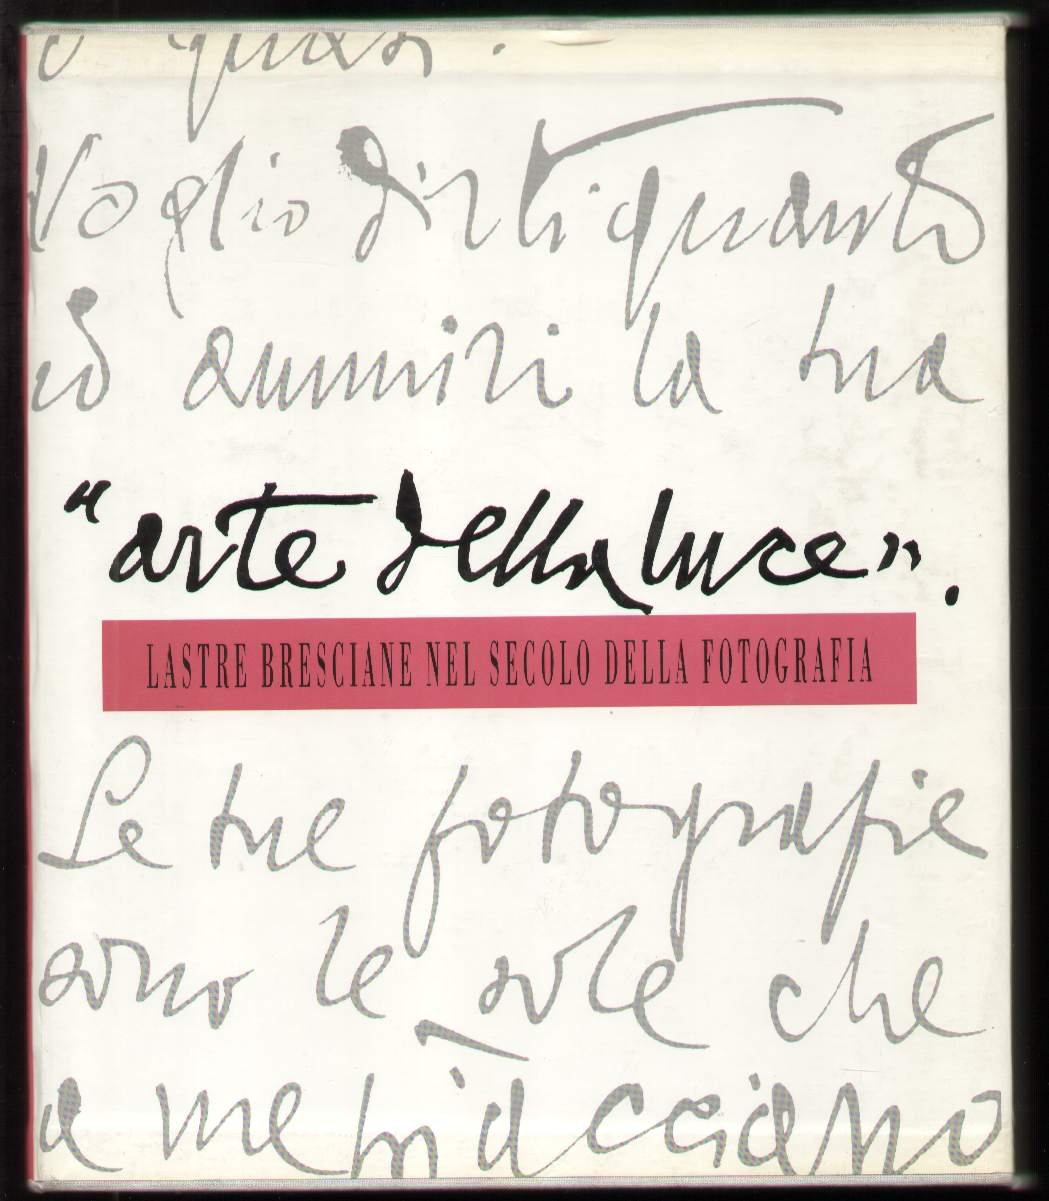 o quasi.
Voglio dirti quanto
ammiri la tua
"arte della luce".
LASTRE BRESCIANE NEL SECOLO DELLA FOTOGRAFIA
Le tue fotografie
sono le sole che
a me piacciano